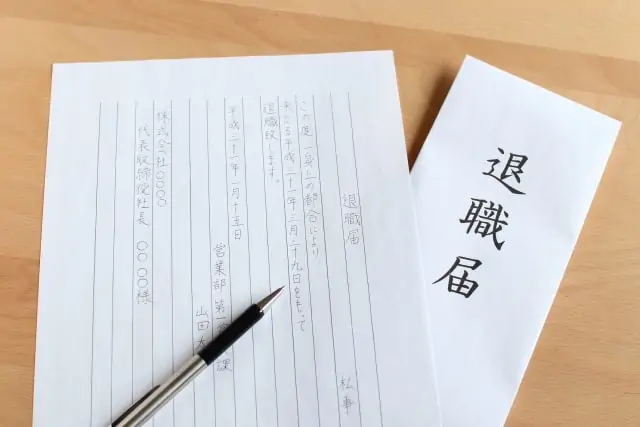 退職届
私事
この度 一身上の都合により
来たる平成二十一年三月二十九日をもって
退職致します。
平成二十一年一月十五日
営業部 第一 課
山田
株式会社○○○○
代表取締役社長 ○○ ○○様
退職届